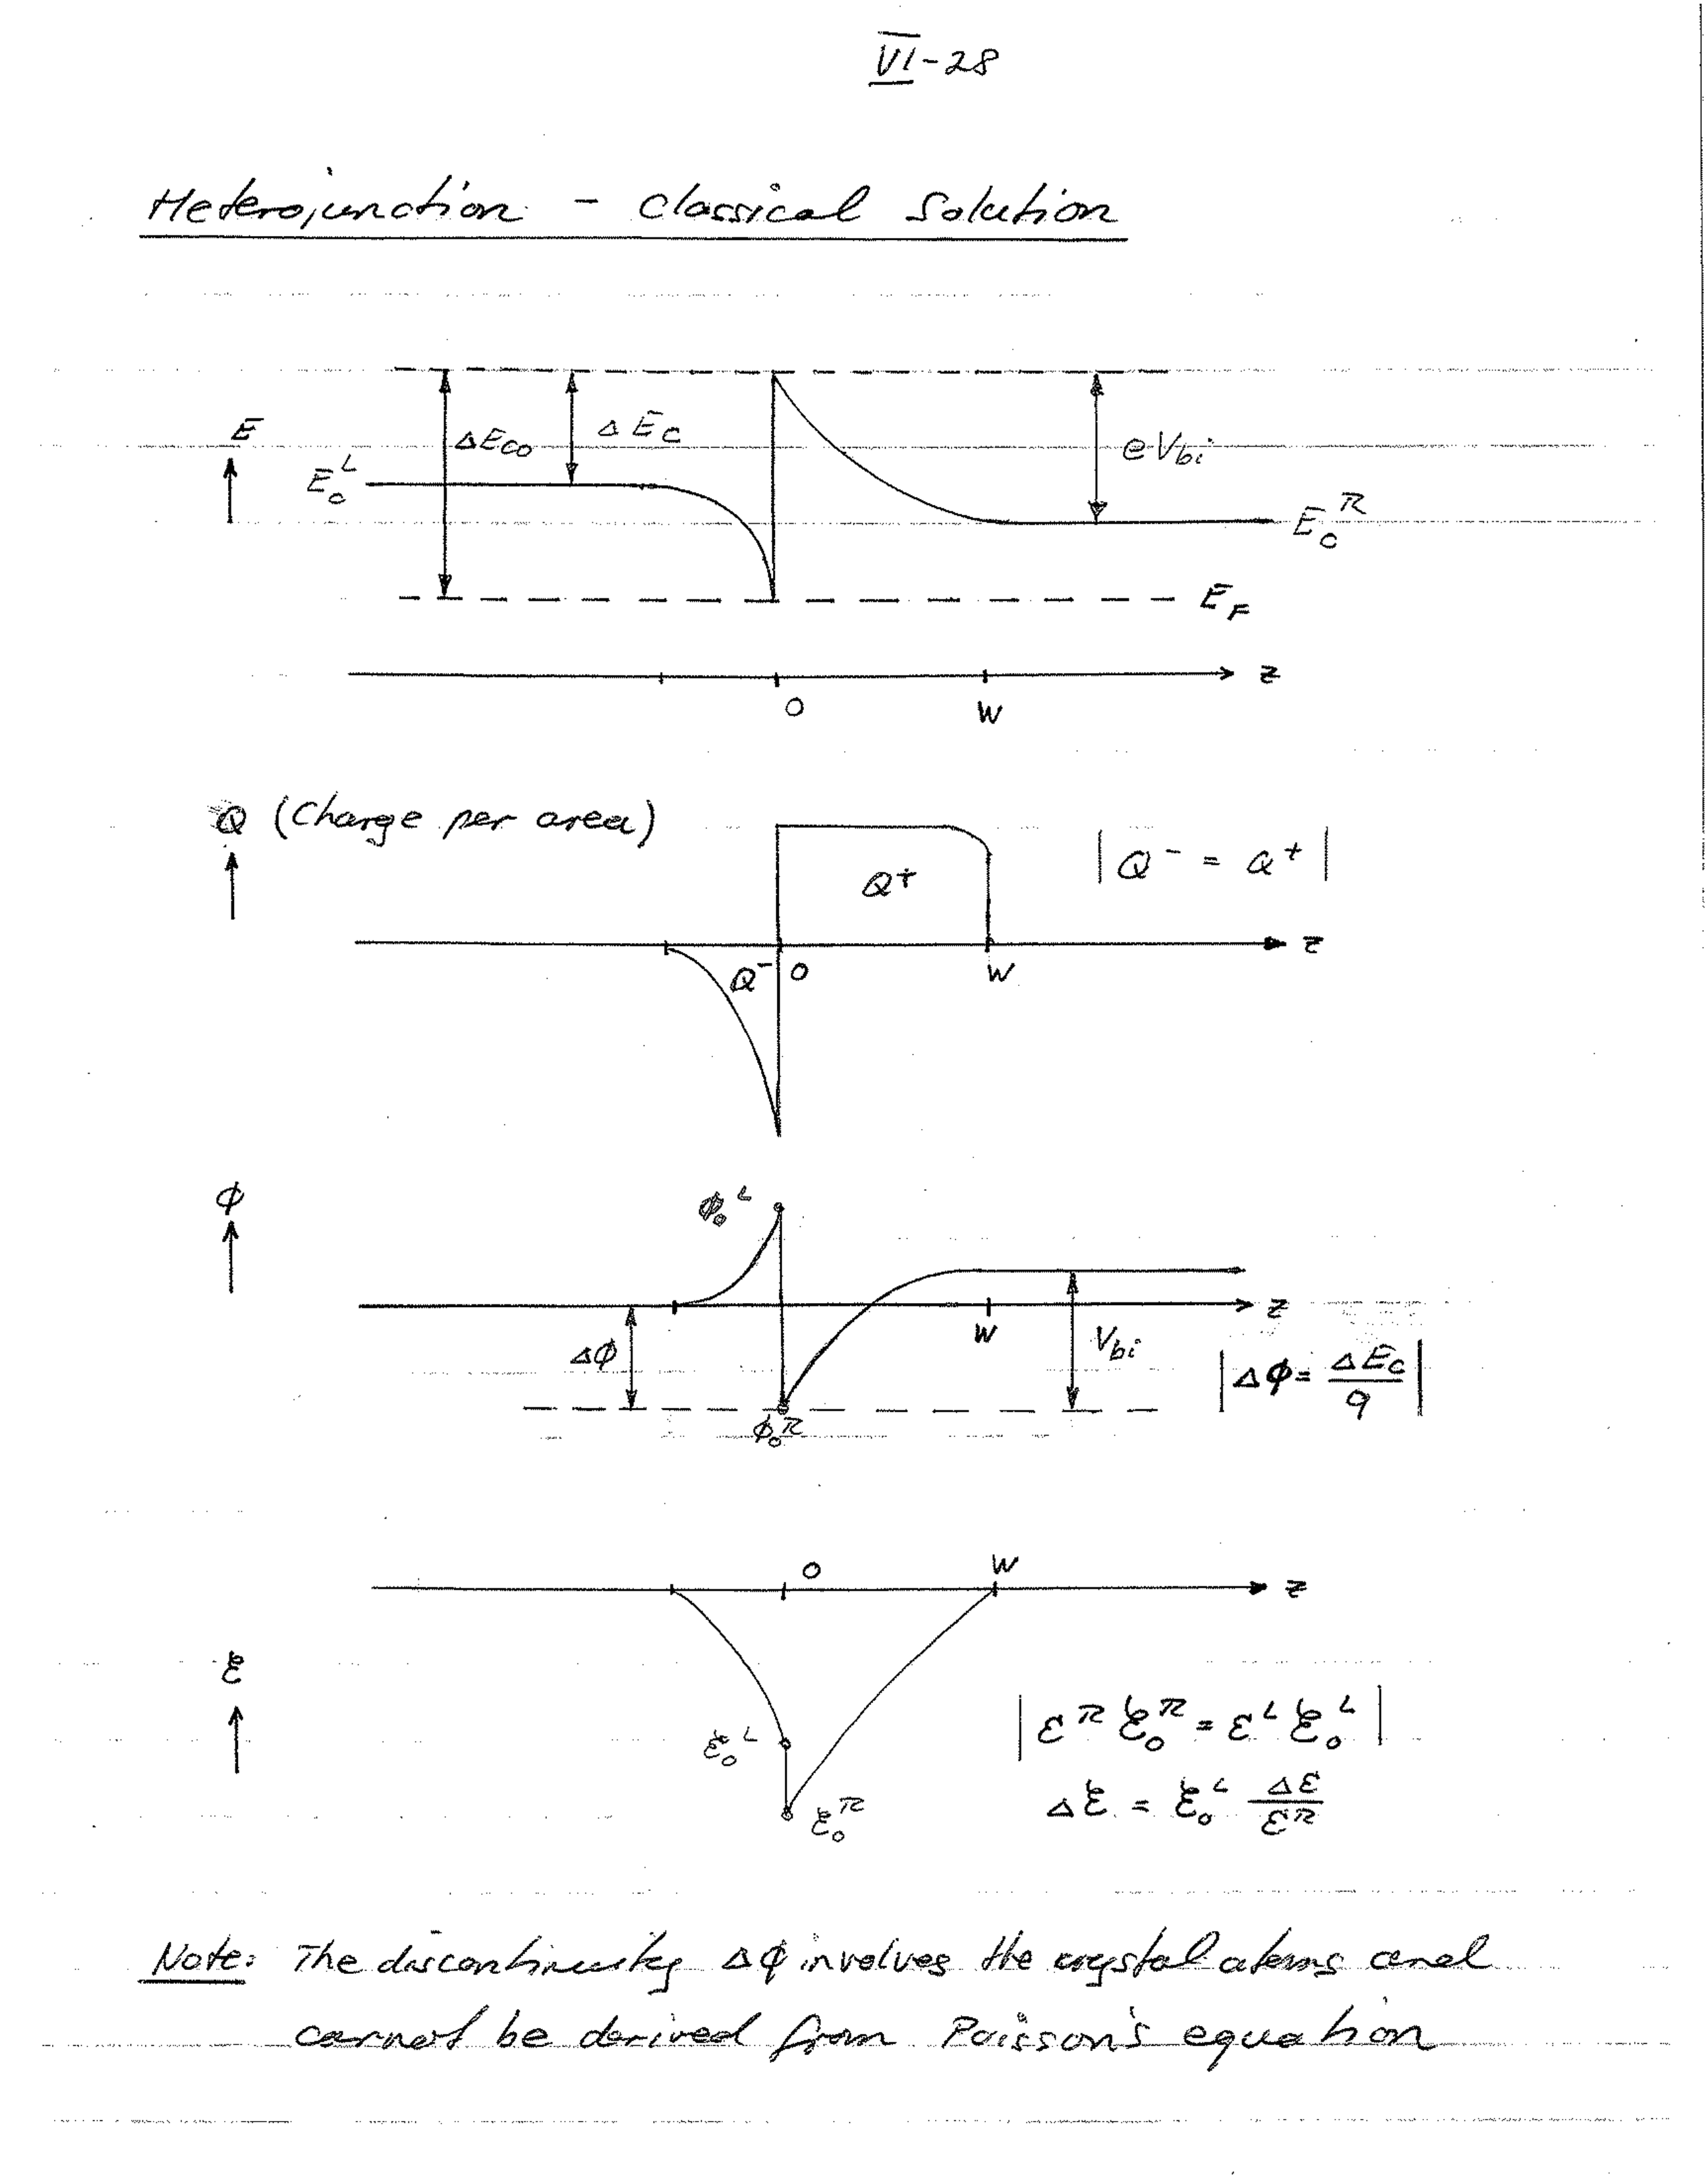 VI-28
Heterojunction - Classical Solution
E
ΔE_co
ΔE_c
eV_bi
E_o^L
E_o^R
E_F
z
0
W
Q (Charge per area)
Q⁺
|Q⁻ = Q⁺|
z
Q⁻
0
W
ϕ
ϕ_o^L
z
W
Δϕ
V_bi
|Δϕ = ΔE_c/q|
ϕ_o^R
0
W
z
ξ
ξ_o^L
|ε^R ξ_o^R = ε^L ξ_o^L|
Δξ = ξ_o^L Δε/ε^R
ξ_o^R
Note: The discontinuity Δϕ involves the crystal atoms and
cannot be derived from Poisson's equation